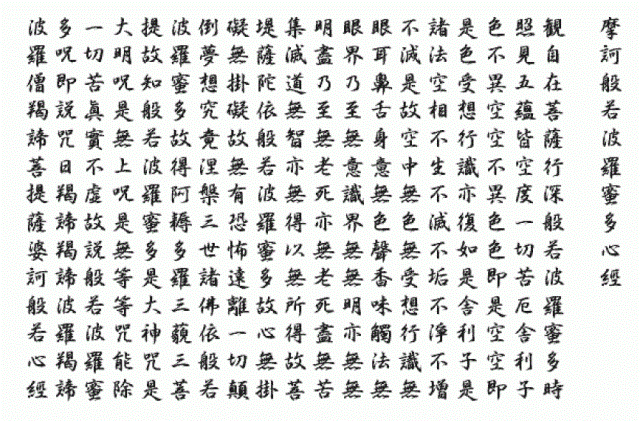 摩訶般若波羅蜜多心經
觀自在菩薩行深般若波羅蜜多時
照見五蘊皆空度一切苦厄舍利子
色不異空空不異色色即是空空即
是色受想行識亦復如是舍利子是
諸法空相不生不滅不垢不淨不增
不滅是故空中無色無受想行識無
眼耳鼻舌身意無色聲香味觸法無
眼界乃至無意識界無無明亦無無
明盡乃至無老死亦無老死盡無苦
集滅道無智亦無得以無所得故菩
堤薩陀依般若波羅蜜多故心無掛
礙無掛礙故無有恐怖遠離一切顛
倒夢想究竟涅槃三世諸佛依般若
波羅蜜多故得阿耨多羅三藐三菩
提故知般若波羅蜜多是大神咒是
大明咒是無上咒是無等等咒能除
一切苦眞實不虛故說般若波羅蜜
多咒即說咒曰羯諦羯諦波羅羯諦
波羅僧羯諦菩提薩婆訶般若心經